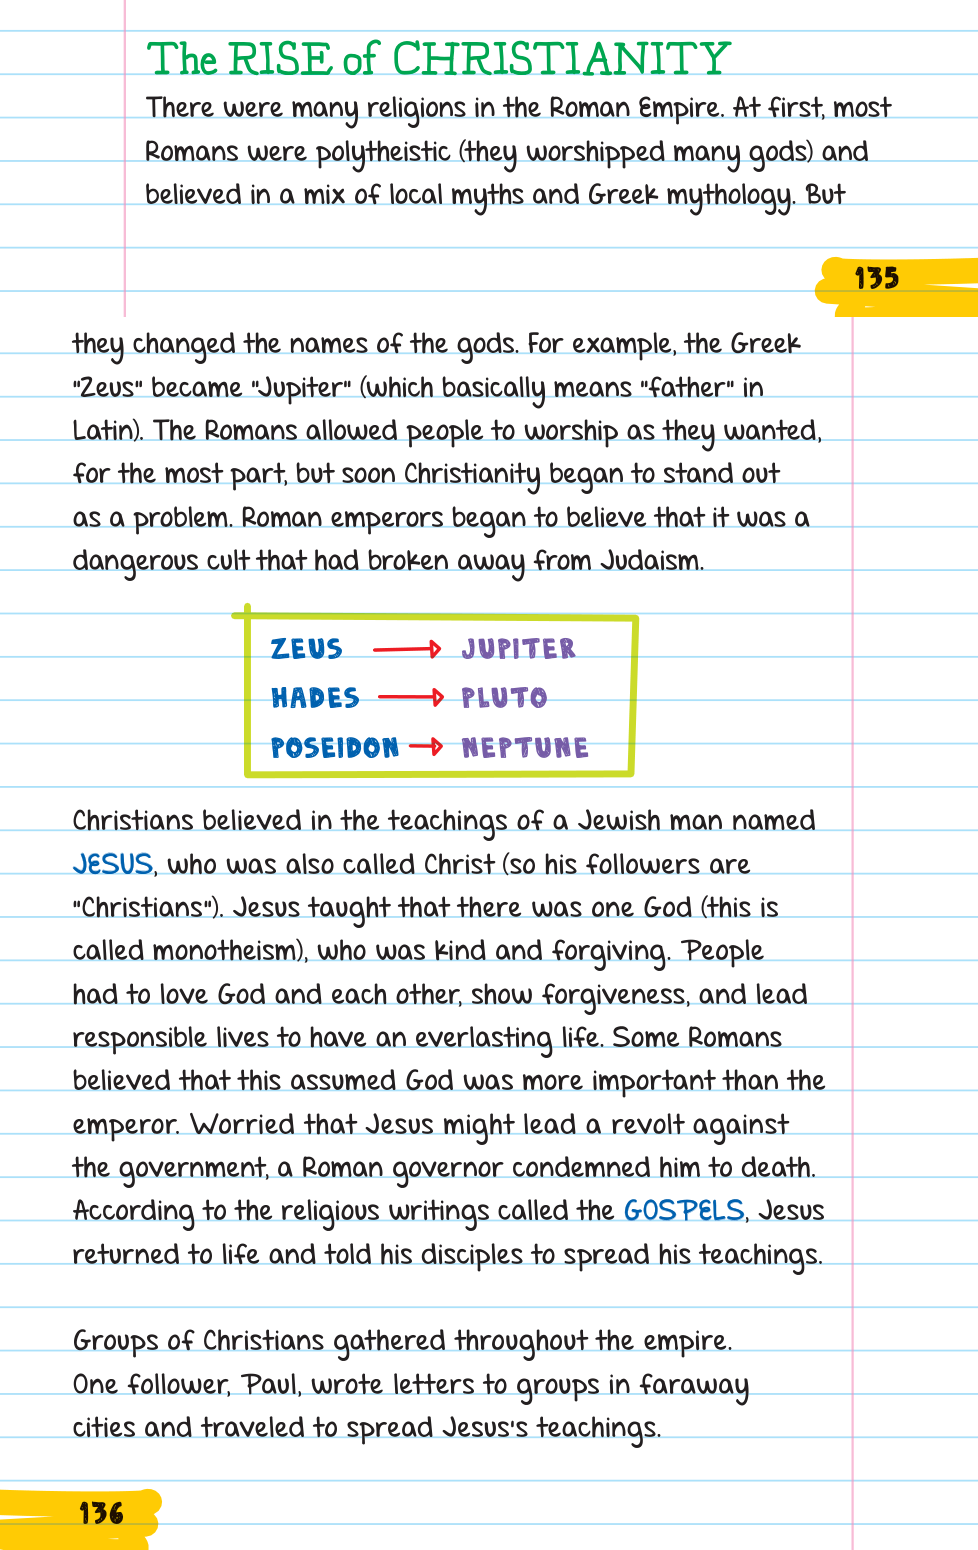 The RISE of CHRISTIANITY
There were many religions in the Roman Empire. At first, most
Romans were polytheistic (they worshipped many gods) and
believed in a mix of local myths and Greek mythology. But
135
they changed the names of the gods. For example, the Greek
"Zeus" became "Jupiter" (which basically means "father" in
Latin). The Romans allowed people to worship as they wanted,
for the most part, but soon Christianity began to stand out
as a problem. Roman emperors began to believe that it was a
dangerous cult that had broken away from Judaism.
ZEUS → JUPITER
HADES → PLUTO
POSEIDON → NEPTUNE
Christians believed in the teachings of a Jewish man named
JESUS, who was also called Christ (so his followers are
"Christians"). Jesus taught that there was one God (this is
called monotheism), who was kind and forgiving. People
had to love God and each other, show forgiveness, and lead
responsible lives to have an everlasting life. Some Romans
believed that this assumed God was more important than the
emperor. Worried that Jesus might lead a revolt against
the government, a Roman governor condemned him to death.
According to the religious writings called the GOSPELS, Jesus
returned to life and told his disciples to spread his teachings.
Groups of Christians gathered throughout the empire.
One follower, Paul, wrote letters to groups in faraway
cities and traveled to spread Jesus's teachings.
136